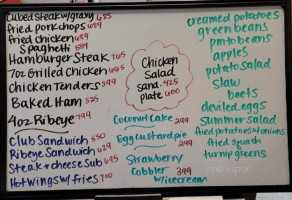 Cubed steak w/gravy 685
fried pork chops 689
fried chicken 689
Spaghetti 589
Hamburger Steak 765
7oz Grilled Chicken 665
Chicken Tenders 599
Baked Ham 525
4oz Ribeye 799
Club Sandwich 550
Ribeye Sandwich 629
Steak & cheese Sub 695
Hot wings w/ fries 700
Chicken
Salad
sand. 425
plate 600
Coconut Cake 299
Egg custard pie 299
Strawberry
Cobbler 399
w/icecream
creamed potatoes
green beans
pinto beans
apples
potato salad
slaw
beets
deviled eggs
summer salad
fried potatoes w/onions
fried squash
turnip greens